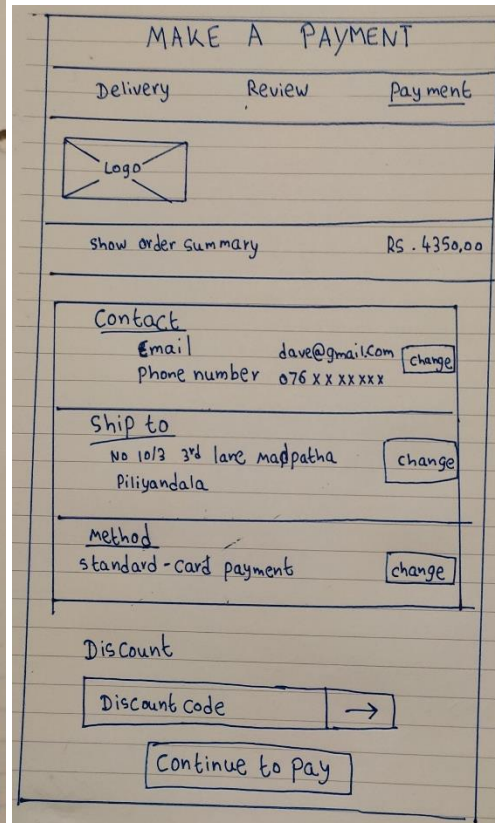 MAKE A PAYMENT
Delivery Review Payment
Logo
show order summary RS. 4350,00
Contact
Email dave@gmail.com change
Phone number 076 X X X X X X X
Ship to
No 10/3 3rd lane madpatha change
Piliyandala
method
standard-card payment change
Discount
Discount code →
Continue to pay